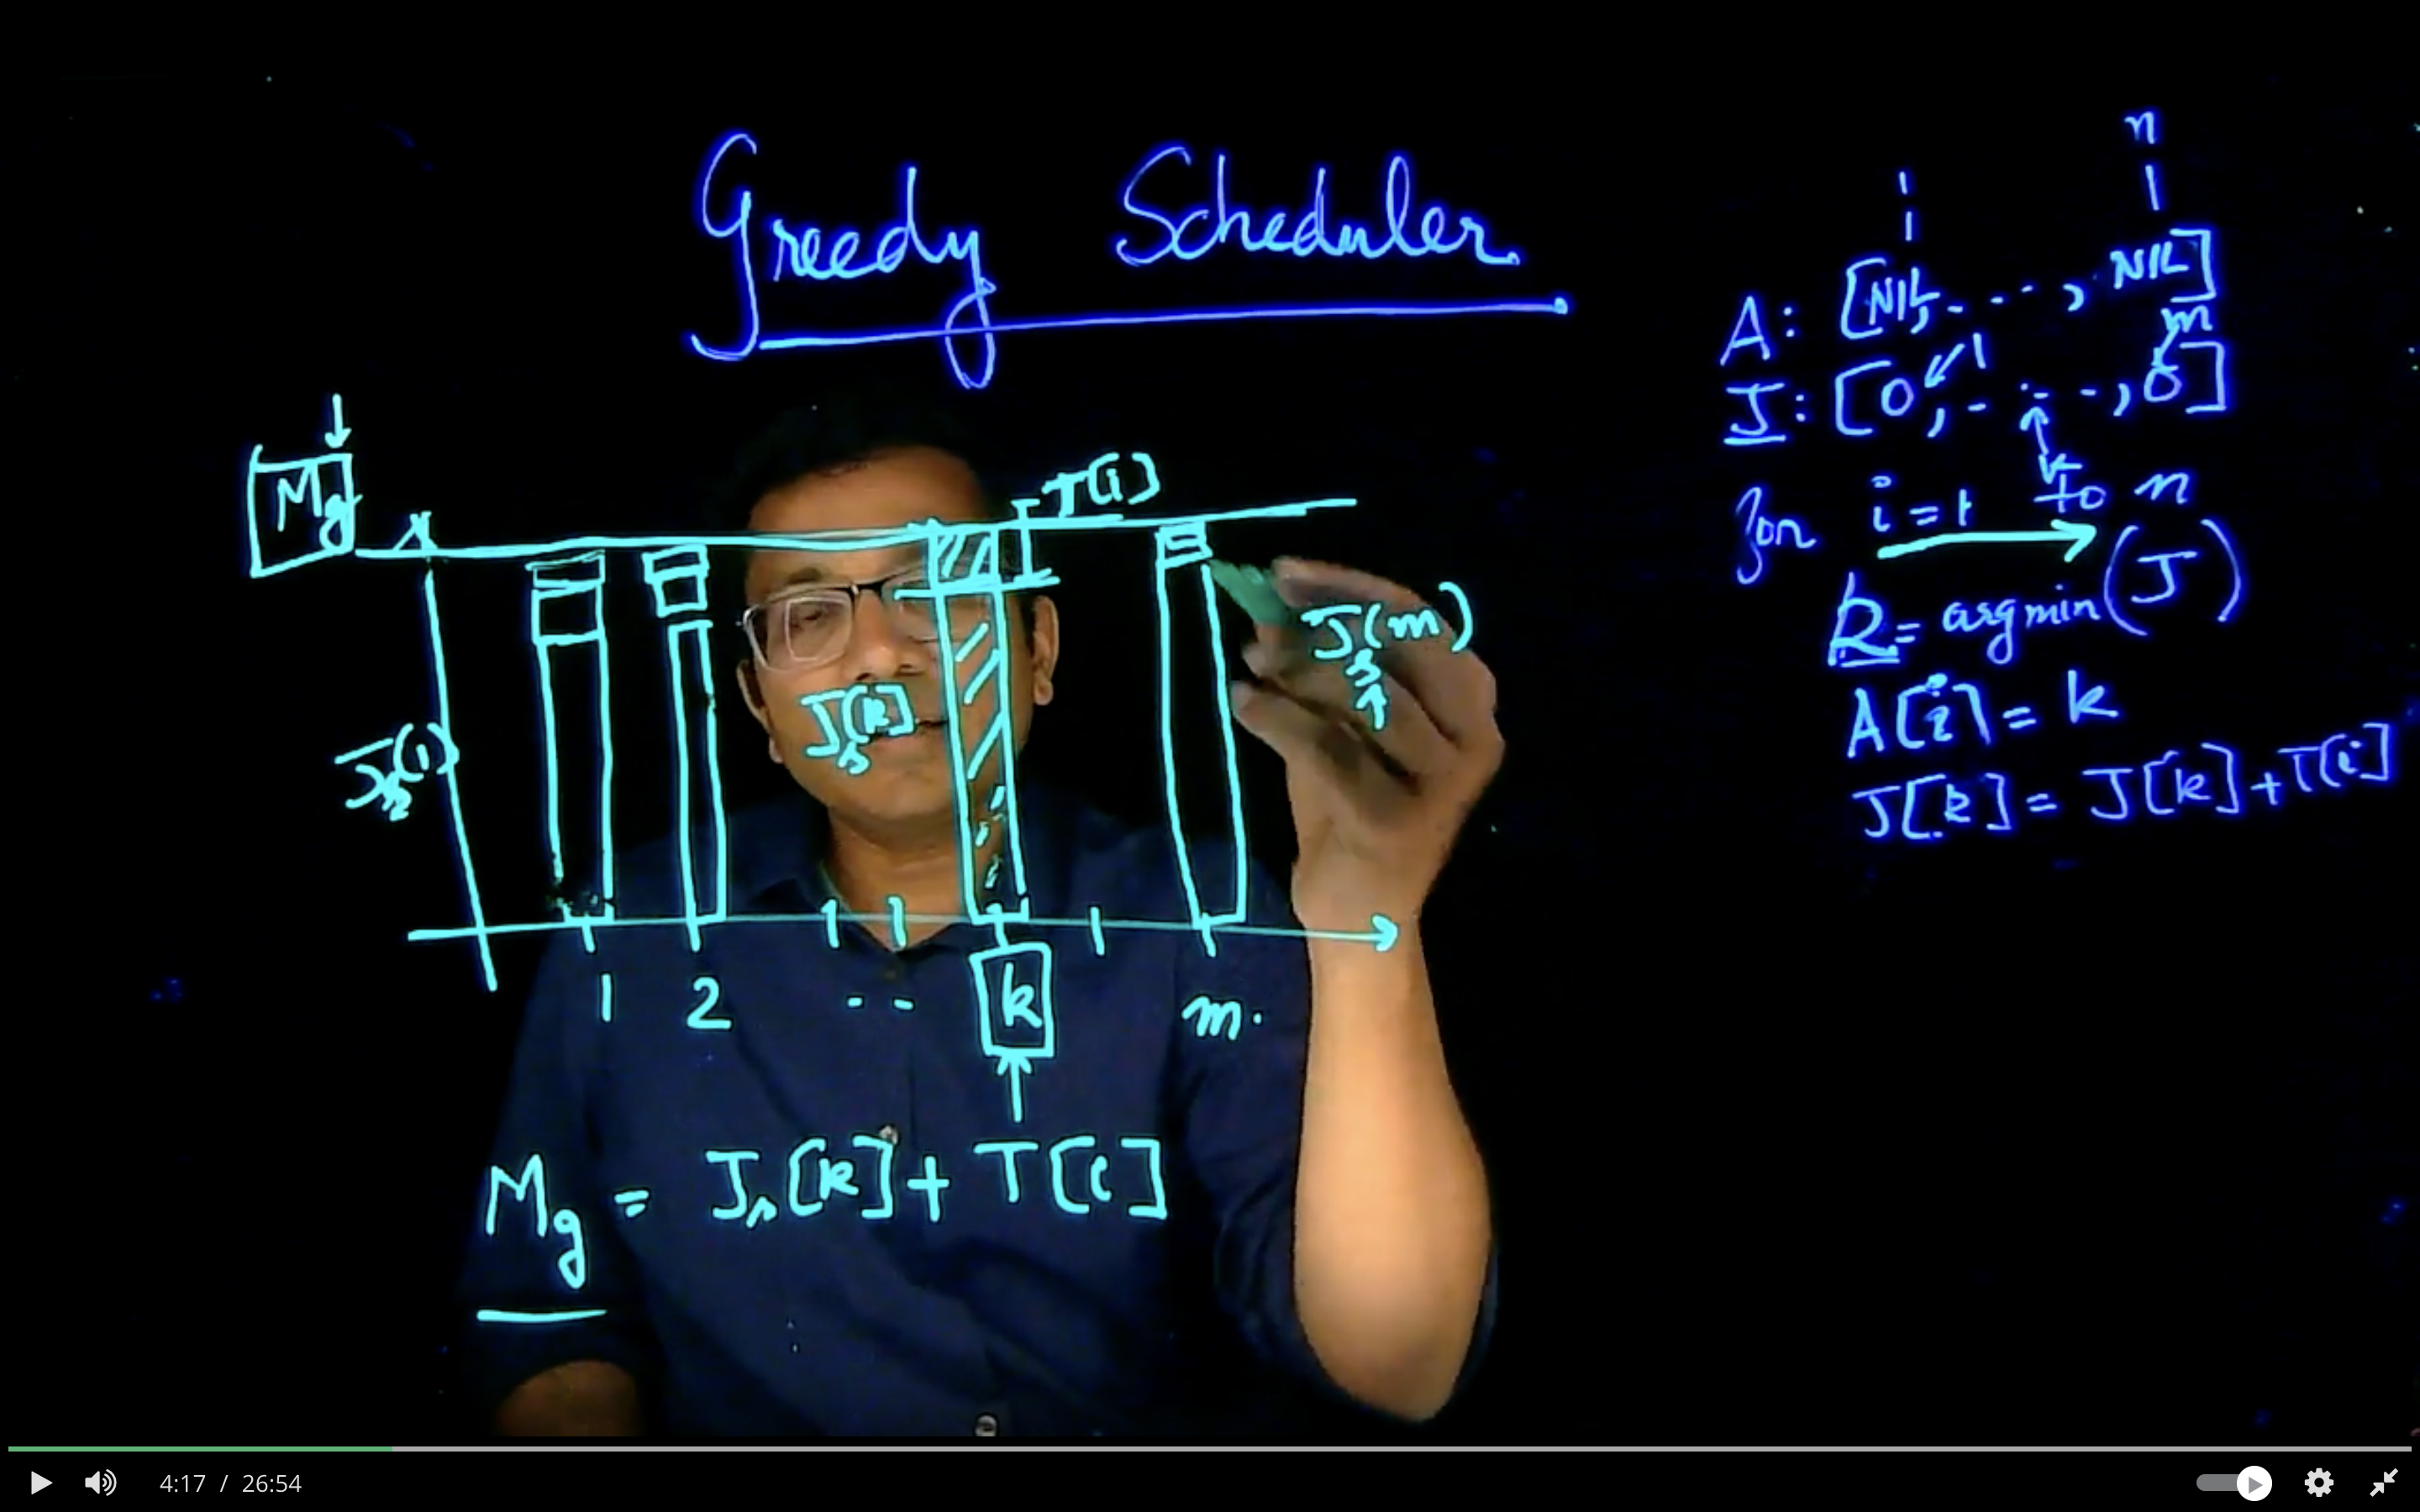 Greedy Scheduler
Mg
T(i)
J_s(1)
J_s[k]
J_s(m)
1 2 -- k m.
Mg = J_s[k] + T[i]
1 n
A: [NIL, ..., NIL]
1 m
J: [0, - - -, 0]
k
for i = 1 to n
k = argmin(J)
A[i] = k
J[k] = J[k] + T[i]
4:17 / 26:54